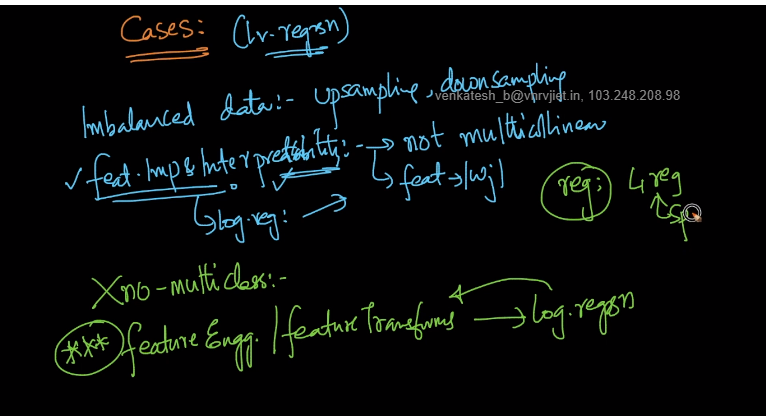 Cases: (Lr-regrsn)
Imbalanced data:- upsampling, downsampling
venkatesh_b@vnrvjiet.in, 103.248.208.98
✓ feat. Imp & Interpretability:- → not multicollinear
✓ ↳ feat → |wj|
↳ log.reg: →
reg: L1 reg
↑ Sp
X no-multiclass:-
*** feature Engg. / feature Transforms → log.regrsn